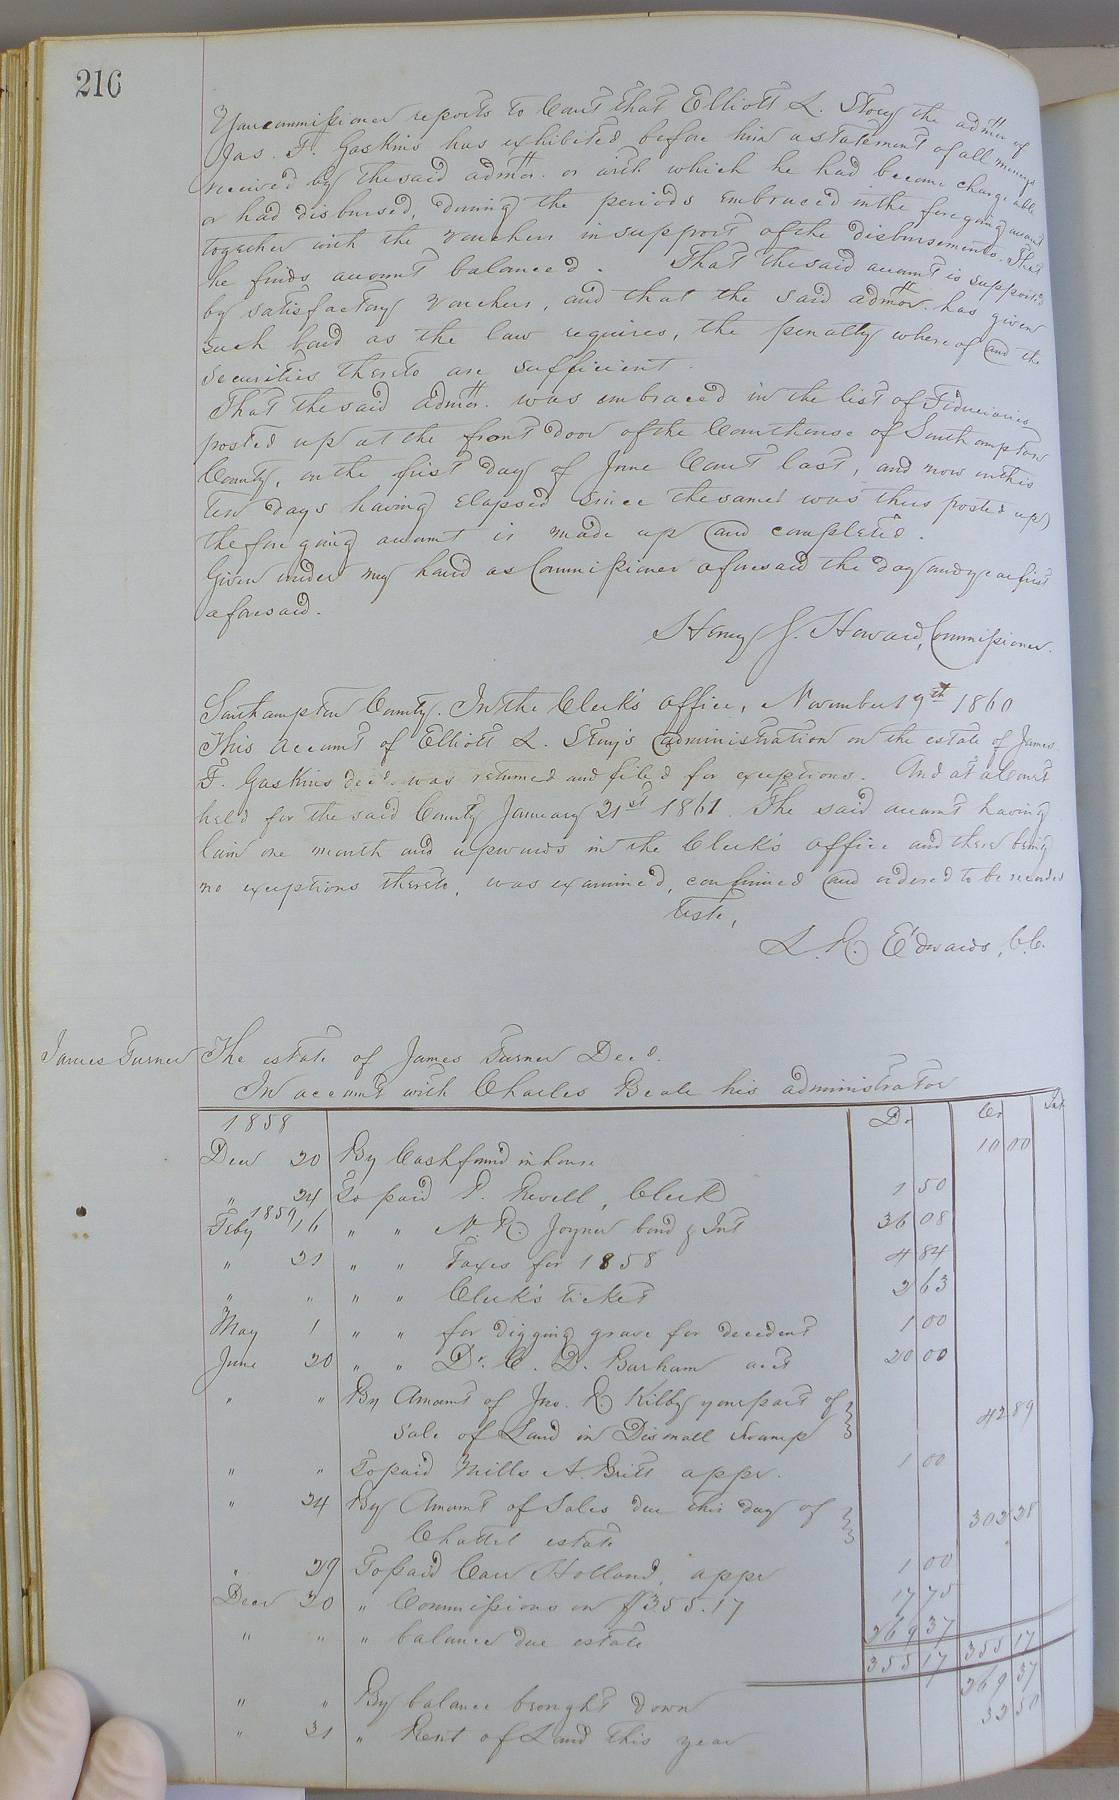 216
Your commissioner reports to Court that Elliott L. Story the admtr of
Jas. F. Gaskins has exhibited before him a statement of all moneys
received by the said admtr. or with which he had become chargeable
or had disbursed, during the periods embraced in the foregoing account
together with the vouchers in support of the disbursements. That
he finds account balanced. That the said account is supported
by satisfactory vouchers, and that the said admtor. has given
such bond as the law requires, the penalty whereof and the
Securities thereto are sufficient.
That the said admtr. was embraced in the list of Fiduciaries
posted up at the front door of the Courthouse of Southampton
County, on the first day of June Court last, and now on this
ten days having elapsed since the same was thus posted up
the foregoing account is made up and completed.
Given under my hand as Commissioner aforesaid the day and year first
aforesaid.
Henry J. Howard, Commissioner.
Southampton County. In the Clerk's office, November 19th 1860
This account of Elliott L. Story's administration on the estate of James
F. Gaskins decd. was returned and filed for exceptions. And at a Court
held for the said County January 21st 1861. The said account having
lain one month and upwards in the Clerk's office and there being
no exceptions thereto, was examined, confirmed and ordered to be recorded
Teste,
L. R. Edwards, C.C.
James Turner The estate of James Turner Decd.
In account with Charles Beale his administrator
1858 Dr Cr Int
Decr 20 By Cash found in house 10 00
" 24 To paid P. Revell, Clerk 1 50
1859
Feby 16 " " N. R. Joyner bond & Int 36 08
" 21 " " Taxes for 1858 4 84
" " " " Clerk's ticket 2 63
May 1 " " for digging grave for decedent 1 00
June 20 " " Dr. C. D. Barham acct 20 00
" " By Amount of Jno. R. Kilby your part of
Sale of Land in Dismall Swamp 42 89
" " To paid Mills A. Britt appr. 1 00
" 24 By Amount of Sales due this day of
Chattel estate 302 28
" 29 To paid Carr Holland, appr 1 00
Decr 20 " Commissions on $355.17 17 75
" " " balance due estate 269 37
355 17 355 17
" " By balance brought down 269 37
" 31 " Rent of Land this year 32 50